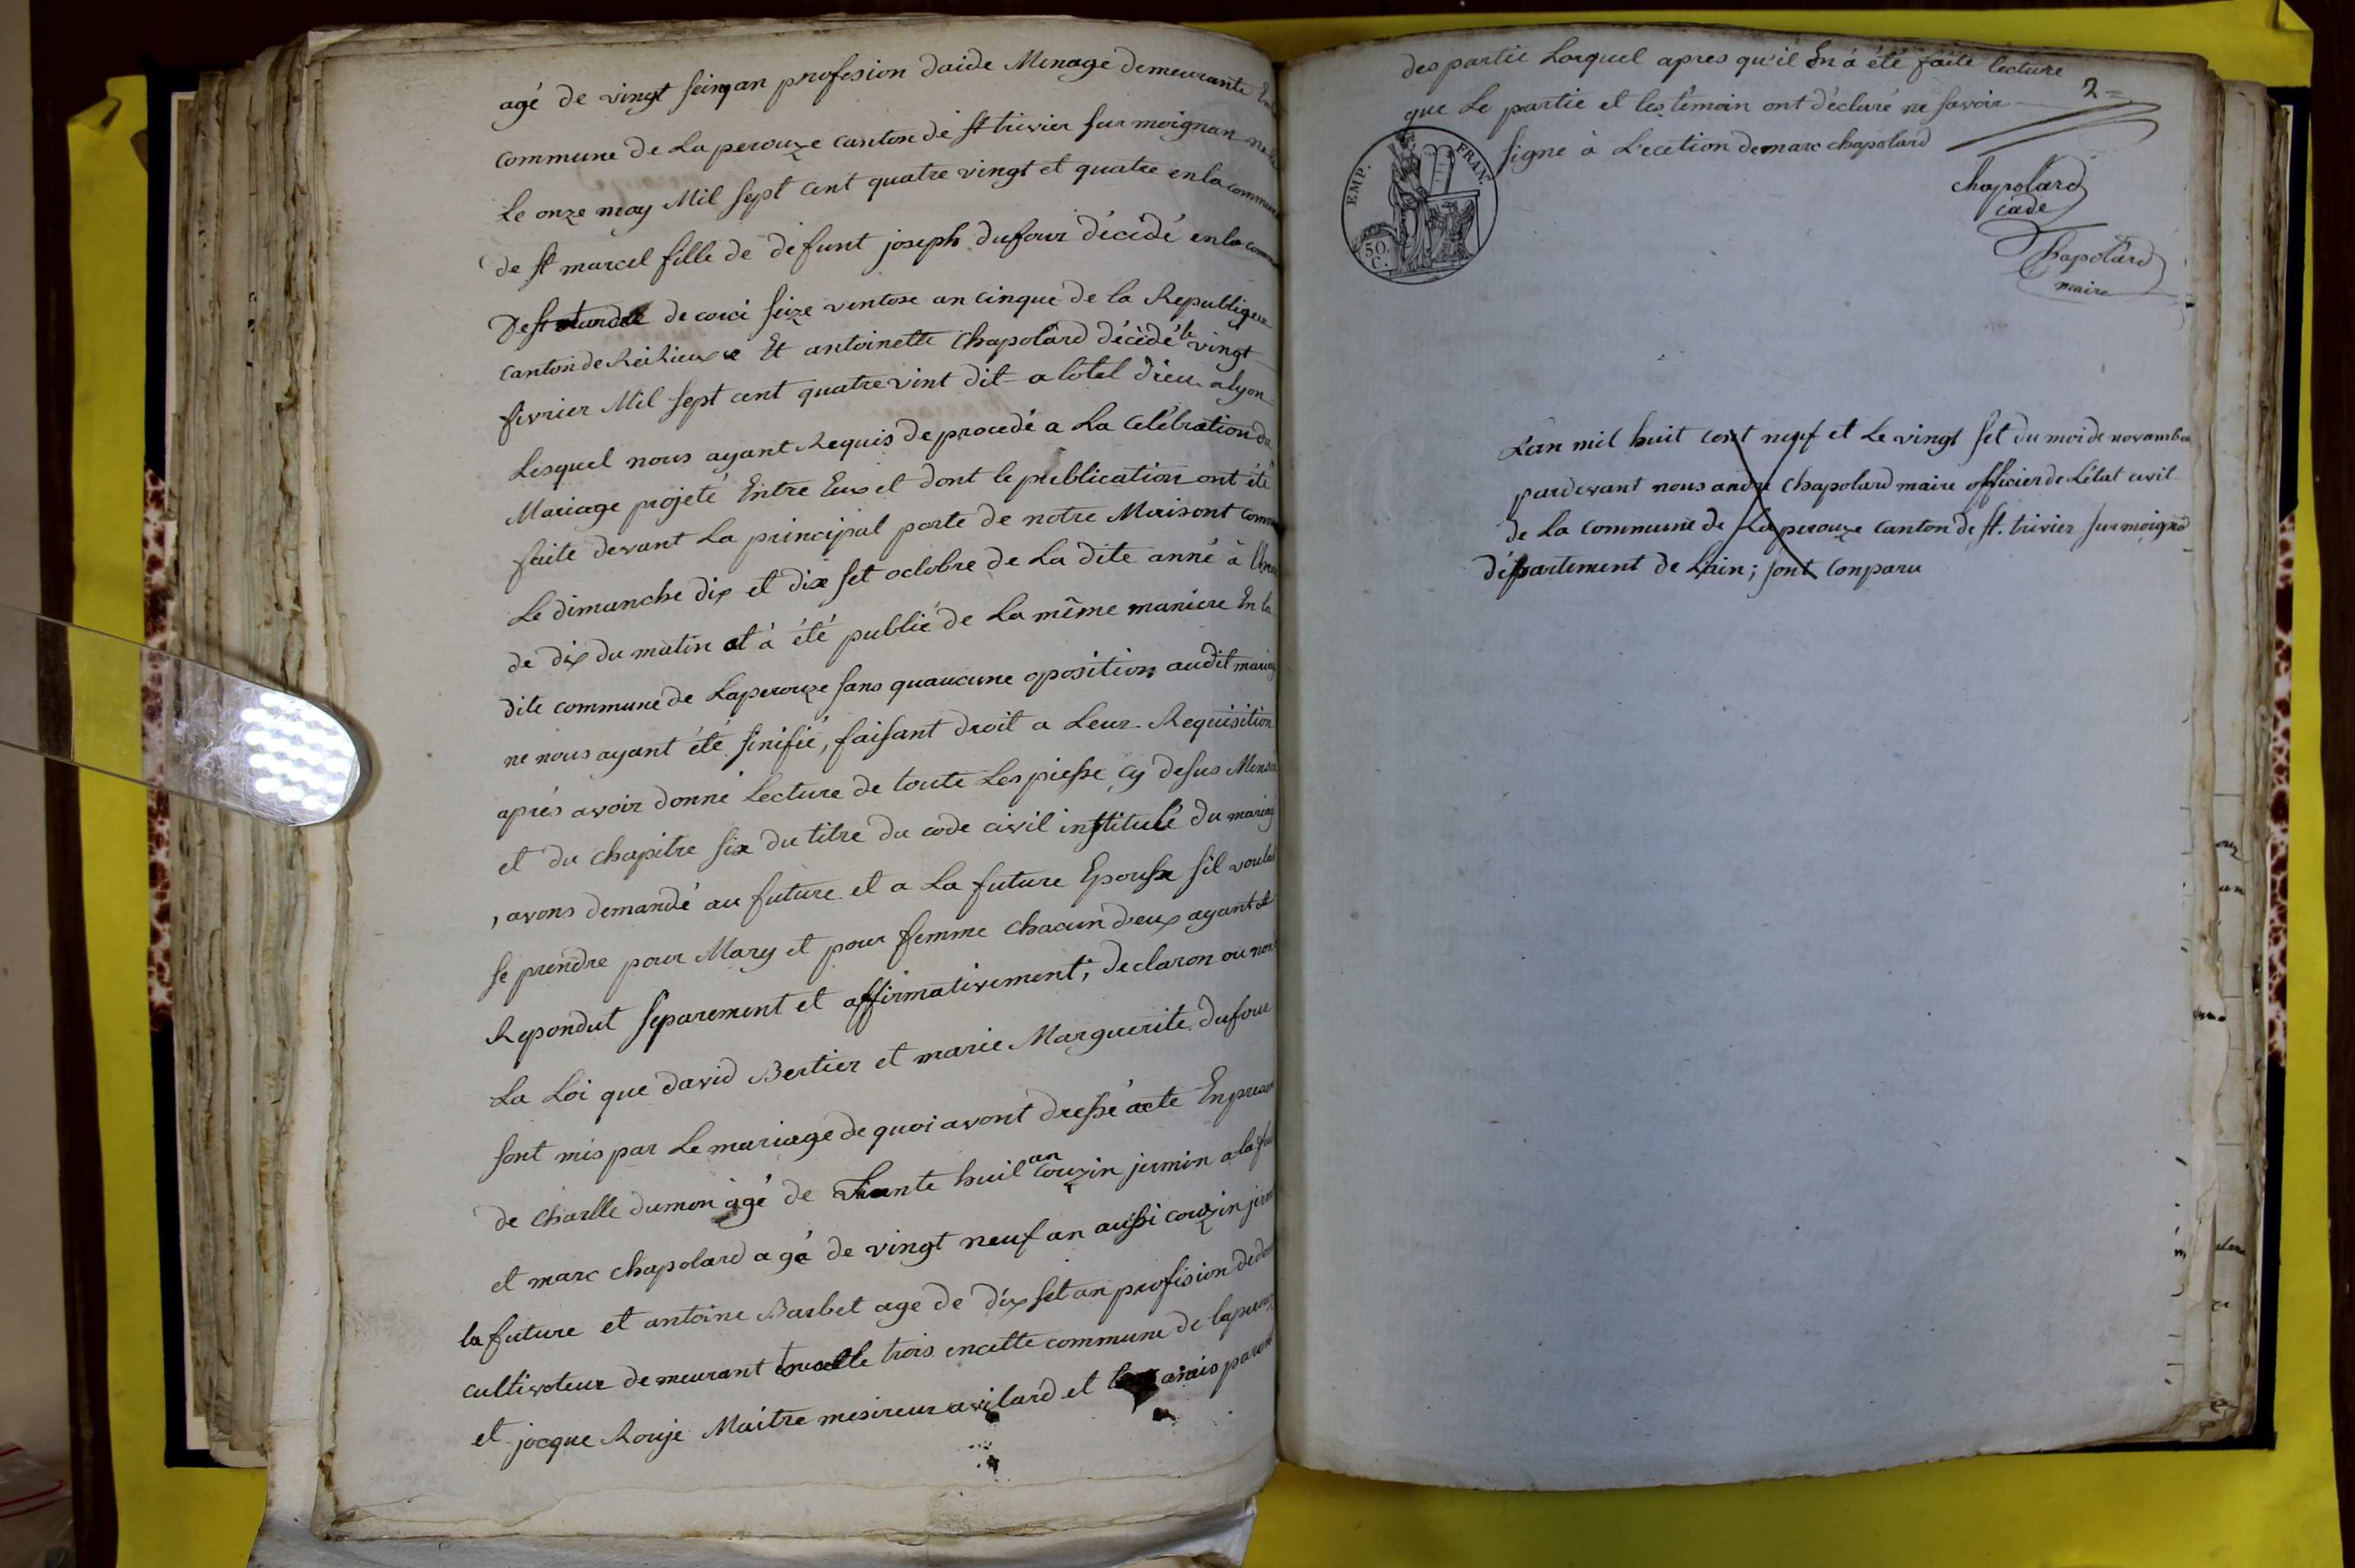 agé de vingt seinq an profesion daide Menage demeurante En
commune de Laperouze canton de st trivier sur moignan
Le onze may Mil sept cent quatre vingt et quatre en la commune
De st marcel fille de defunt joseph dufour décédé en la comm
De st andre de corci seize ventose an cinque de la Republique
canton de Et antoinette Chapolard décédé le vingt
fevrier Mil sept cent quatre vint dit a lotel dieu a lyon
Lesquel nous ayant Requis de procedé a La Célébration du
Mariage projeté Entre Eux et dont le publication ont été
faite devant La principal porte de notre Maisont comm
Le dimanche dix et dix set octobre de La dite anné à l'heure
de dix du matin et à été publié de La même maniere En la
dite commune de Laperouze sans quaucune oposition audit mariage
ne nous ayant été sinifié, faisant droit a Leur Requisition
aprés avoir donné Lecture de toute Les piesse cy desus
et du chapitre six du titre du code civil institulé du mariag
, avons demandé au future et a La future Epousse s'il voulai
se prendre pour Mary et pour femme chacun d'eux ayant
Repondut séparement et affirmativement; declaron ou nom
La Loi que david Bertier et marie Marguerite dufour
sont mis par Le mariage de quoi avont dressé acte En presen
de Charlle dumon agé de trante huit an couzin jermin a la fu
et marc chapolard agé de vingt neuf an aussi couzin jerm
la future et antoine Barbet age de dix set an profision de
cultivateur demeurant toute trois en cette commune de laperouz
et jacque Rouje Maitre mesireur a vilard et amis parent
des partie Lorquel apres qu'il En à été faite lecture
2=
que Le partie et les témoin ont déclaré ne savoir
signé à L'ecetion de marc chapolard
EMP. FRAN.
50
C.
chapolard
cade
Chapolard
maire
L'an mil huit cent neuf et Le vingt set du moi de novambre
pardevant nous andré Chapolard maire officier de L'état civil
de La commune de Laperouze canton de st. trivier sur moignad
département de L'ain; sont Conparu